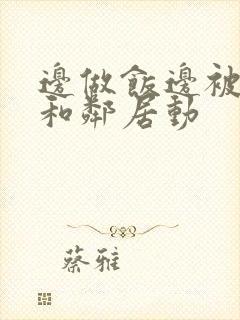 邊做飯邊被
和鄰居動
蔡雅